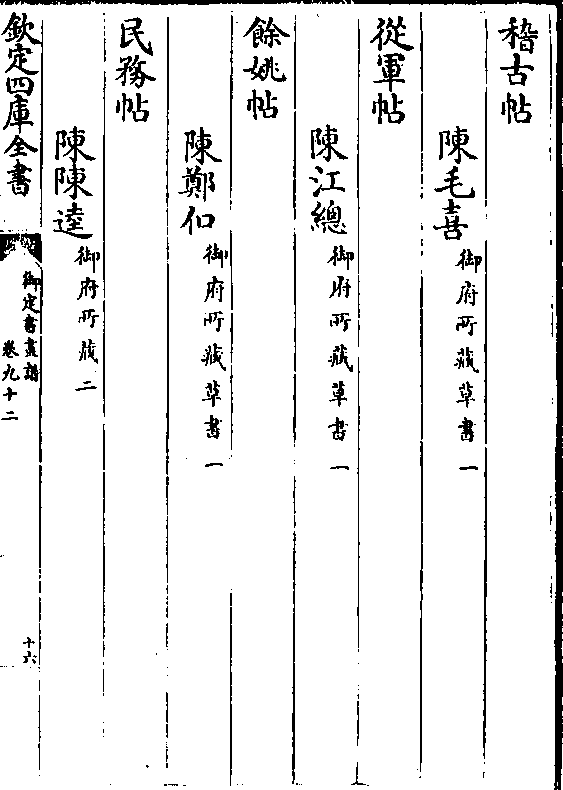 稽古帖
陳毛喜御府所藏草書一
從軍帖
陳江總御府所藏草書一
餘姚帖
陳鄭仙御府所藏草書一
民務帖
陳陳逵御府所藏二
欽定四庫全書
御定書畫譜
卷九十二
十六